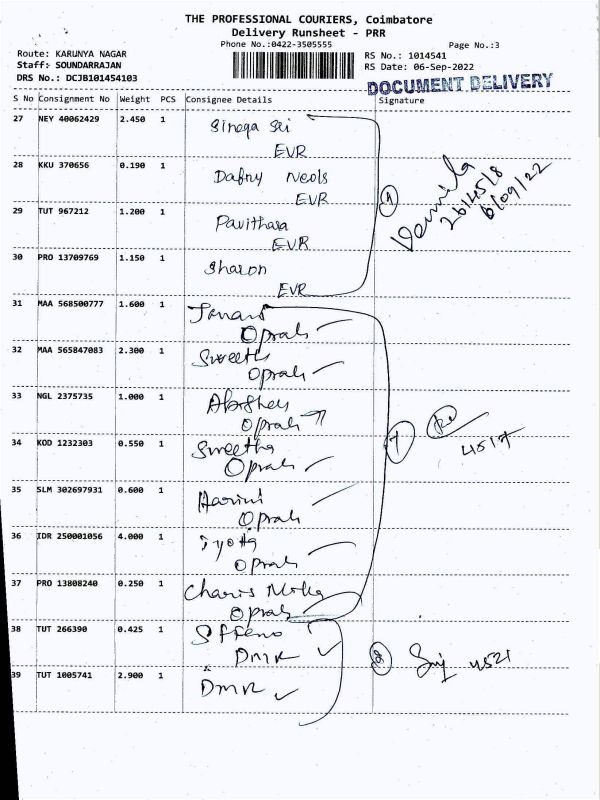 THE PROFESSIONAL COURIERS, Coimbatore
Delivery Runsheet - PRR
Phone No.:0422-3505555
Page No.:3
Route: KARUNYA NAGAR
Staff: SOUNDARRAJAN
DRS No.: DCJB101454103
RS No.: 1014541
RS Date: 06-Sep-2022
DOCUMENT DELIVERY
S No Consignment No Weight PCS Consignee Details Signature
27 NEY 40062429 2.450 1 Sinega Sri
EVR
28 KKU 370656 0.190 1 Dafny Neols
EVR
29 TUT 967212 1.200 1 Pavithara
EVR
30 PRO 13709769 1.150 1 Sharon
EVR
4
6/09/22
31 MAA 568500777 1.600 1
Oprah
32 MAA 565847083 2.300 1 Sweeth
Oprah
33 NGL 2375735 1.000 1
Oprah
34 KOD 1232303 0.550 1 Sweetha
Oprah
7
4517
35 SLM 302697931 0.600 1 Harini
Oprah
36 IDR 250001056 4.000 1
Oprah
37 PRO 13808240 0.250 1 Charis
Oprah
38 TUT 266390 0.425 1
DMR
4521
39 TUT 1005741 2.900 1 DMR